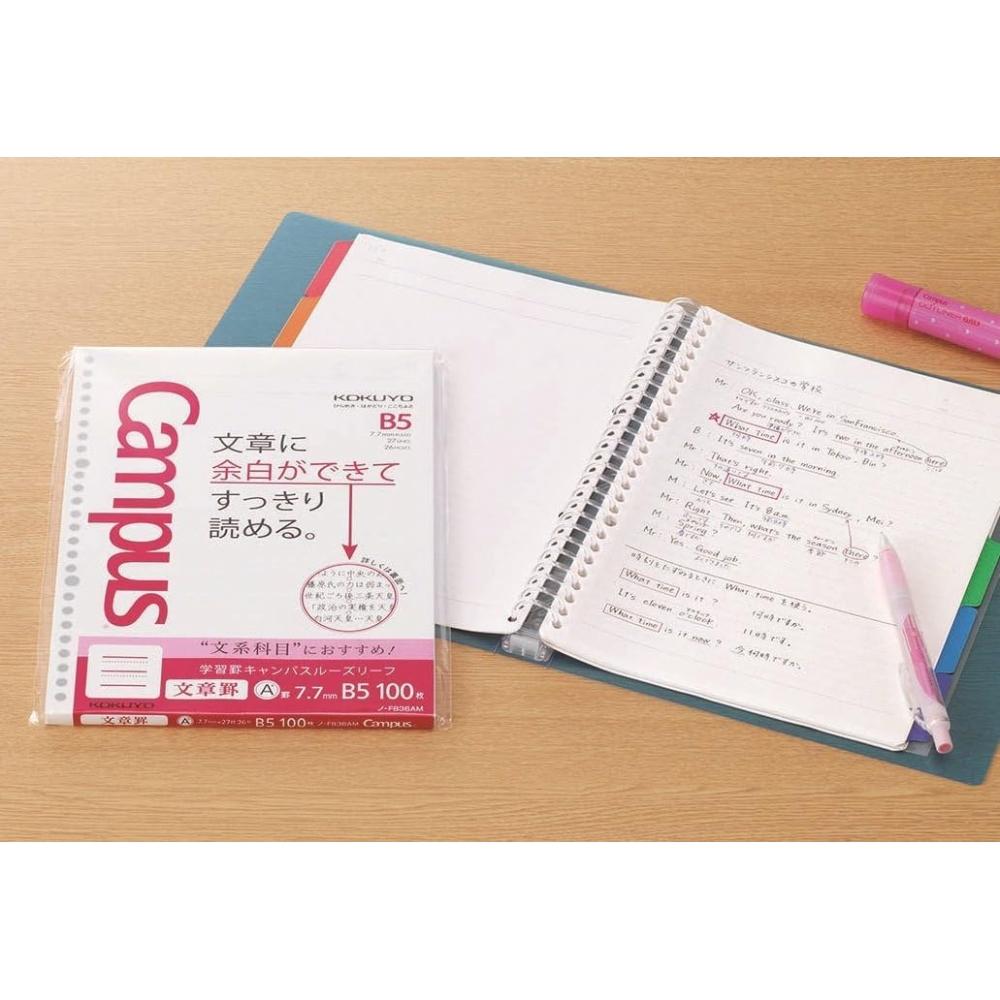 Campus
KOKUYO
ひらめき・はかどり・ここちよさ
B5
文章に
余白ができて
すっきり
読める。
詳しくは裏面へ!
"文系科目"におすすめ!
学習罫キャンパスルーズリーフ
文章罫 A罫 7.7mm B5 100枚
KOKUYO
文章罫 A 7.7mm×27行 B5 100枚 ノ-F836AM Campus
Campus
サンフランシスコの学校
Mr: OK, class. We're in SanFrancisco.
Are you ready? It's two in the afternoon here
B: What time is it in Tokyo, Bin?
It's seven in the morning
Mr: That's right.
Mr: Now, What time is it in Sydney, Mei?
M: Let's see. It's 8 a.m.
Mr: Right. Then, what's the season there?
M: Spring?
Mr: Yes. Good job
時刻をたずねるときに What time を使う。
What time is it? 何時ですか。
It's eleven o'clock 11時です。
What time is it now? 今何時ですか。